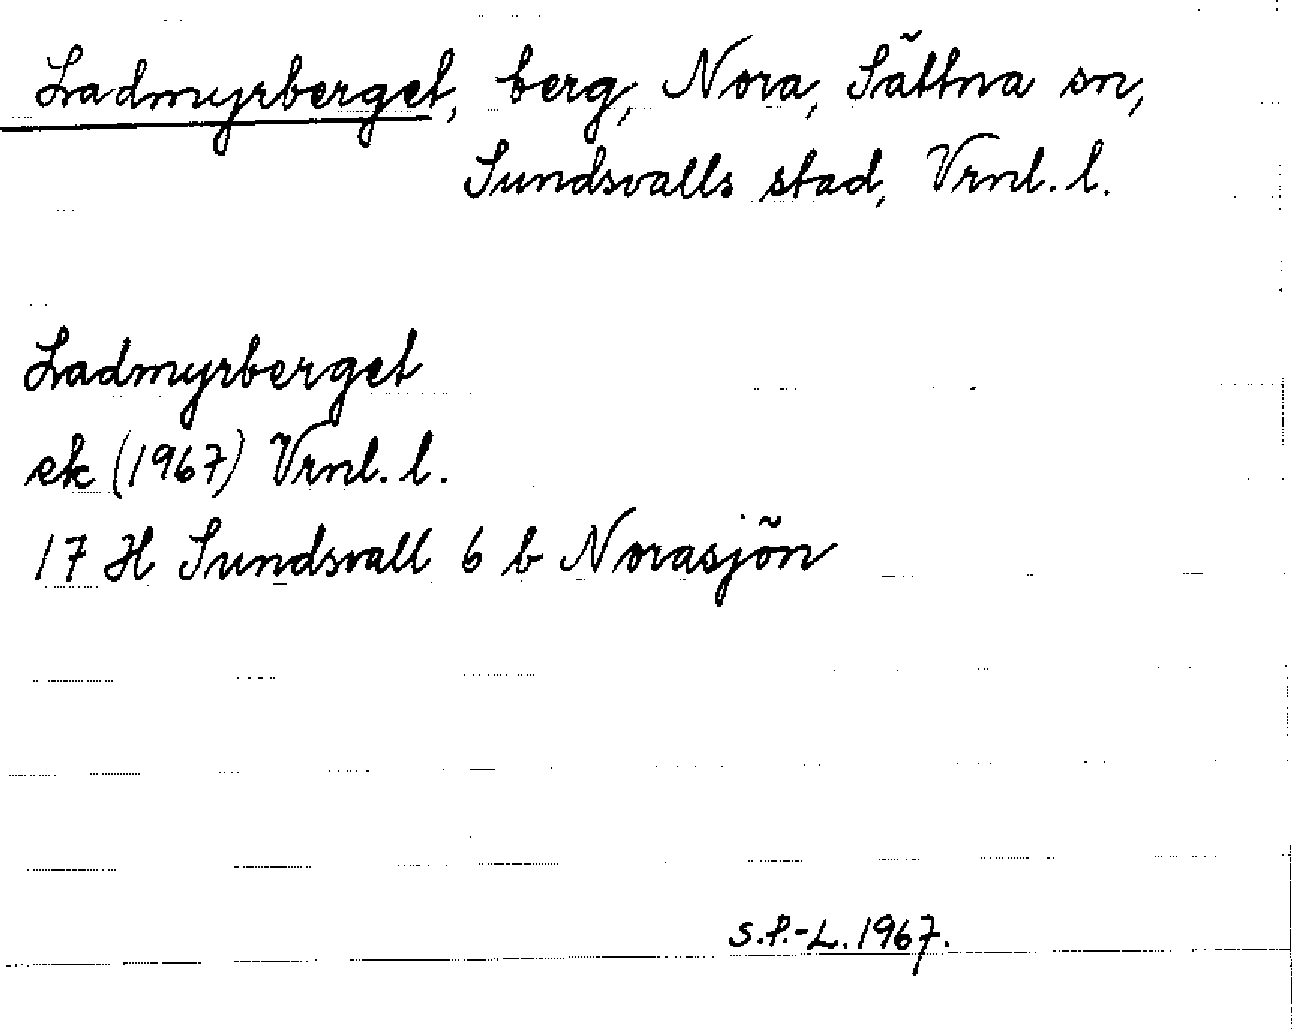 Ladmyrberget, berg, Nora, Sättna sn,
Sundsvalls stad, Vrnl. l.
Ladmyrberget
ek (1967) Vrnl. l.
17 H Sundsvall 6 b Norasjön
S.P.-L. 1967.